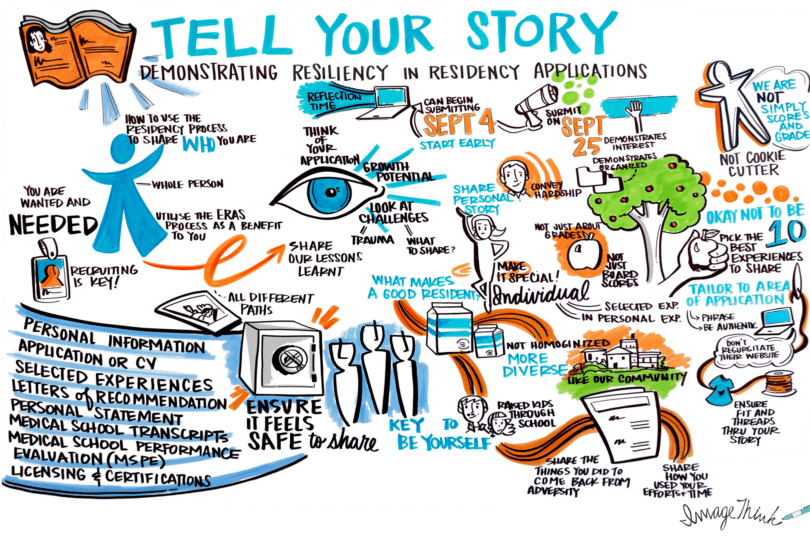 TELL YOUR STORY
DEMONSTRATING RESILIENCY IN RESIDENCY APPLICATIONS
HOW TO USE THE
RESIDENCY PROCESS
TO SHARE WHO YOU ARE
WHOLE PERSON
YOU ARE
WANTED AND
NEEDED
UTILISE THE ERAS
PROCESS AS A BENEFIT
TO YOU
RECRUITING
IS KEY!
SHARE
OUR LESSONS
LEARNT
REFLECTION
TIME
CAN BEGIN
SUBMITTING
SEPT 4
START EARLY
SUBMIT
ON
SEPT
25
DEMONSTRATES
INTEREST
DEMONSTRATES
ORGANIZED
THINK
OF
YOUR
APPLICATION
GROWTH
POTENTIAL
LOOK AT
CHALLENGES
TRAUMA
WHAT
TO SHARE?
SHARE
PERSONAL
STORY
CONVEY
HARDSHIP
NOT JUST ABOUT
GRADES
NOT
JUST
BOARD
SCORES
MAKE
IT SPECIAL!
Individual
WE ARE
NOT
SIMPLY
SCORES
AND
GRADES
NOT COOKIE
CUTTER
OKAY NOT TO BE
10
PICK THE
BEST
EXPERIENCES
TO SHARE
SELECTED EXP.
IN PERSONAL EXP.
TAILOR TO AREA
OF APPLICATION
PHRASE
BE AUTHENTIC
DON'T
REGURGITATE
THEIR WEBSITE
ENSURE
FIT AND
THREADS
THRU YOUR
STORY
ALL DIFFERENT
PATHS
WHAT MAKES
A GOOD RESIDENT?
NOT HOMOGINIZED
MORE
DIVERSE
LIKE OUR COMMUNITY
RAISED KIDS
THROUGH
SCHOOL
PERSONAL INFORMATION
APPLICATION OR CV
SELECTED EXPERIENCES
LETTERS of RECOMMENDATION
PERSONAL STATEMENT
MEDICAL SCHOOL TRANSCRIPTS
MEDICAL SCHOOL PERFORMANCE
EVALUATION (MSPE)
LICENSING & CERTIFICATIONS
ENSURE
IT FEELS
SAFE to share
KEY TO
BE YOURSELF
SHARE THE
THINGS YOU DID TO
COME BACK FROM
ADVERSITY
SHARE
HOW YOU
USED YOUR
EFFORTS + TIME
ImageThink